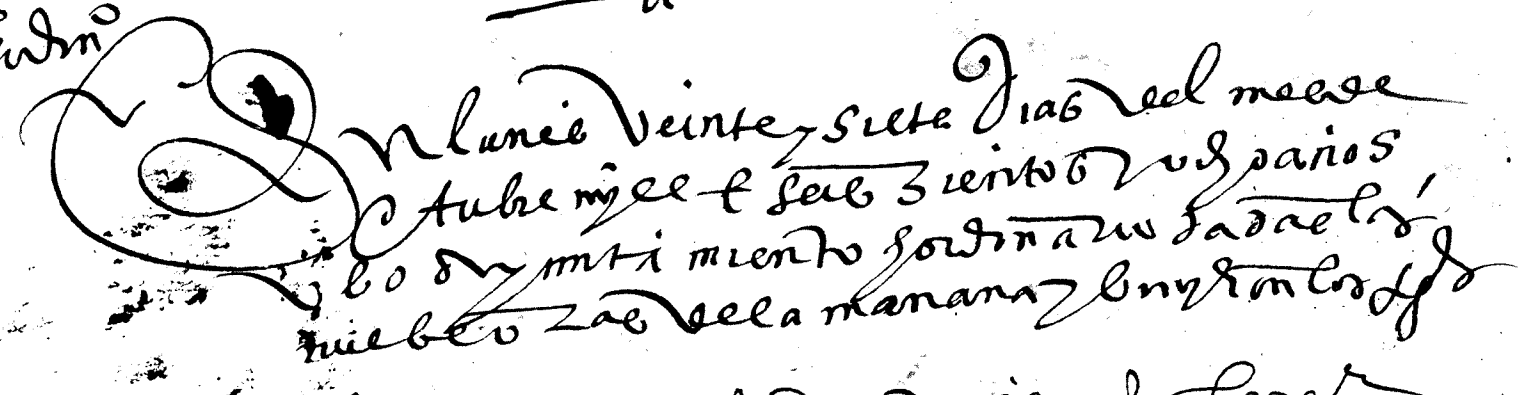 En lunes veinte y siete dias del mes de
otubre mill e seis zientos y ocho anos
ubo ayuntamiento hordinario dadas las
nuebe oras de la manana y binyeron los ss